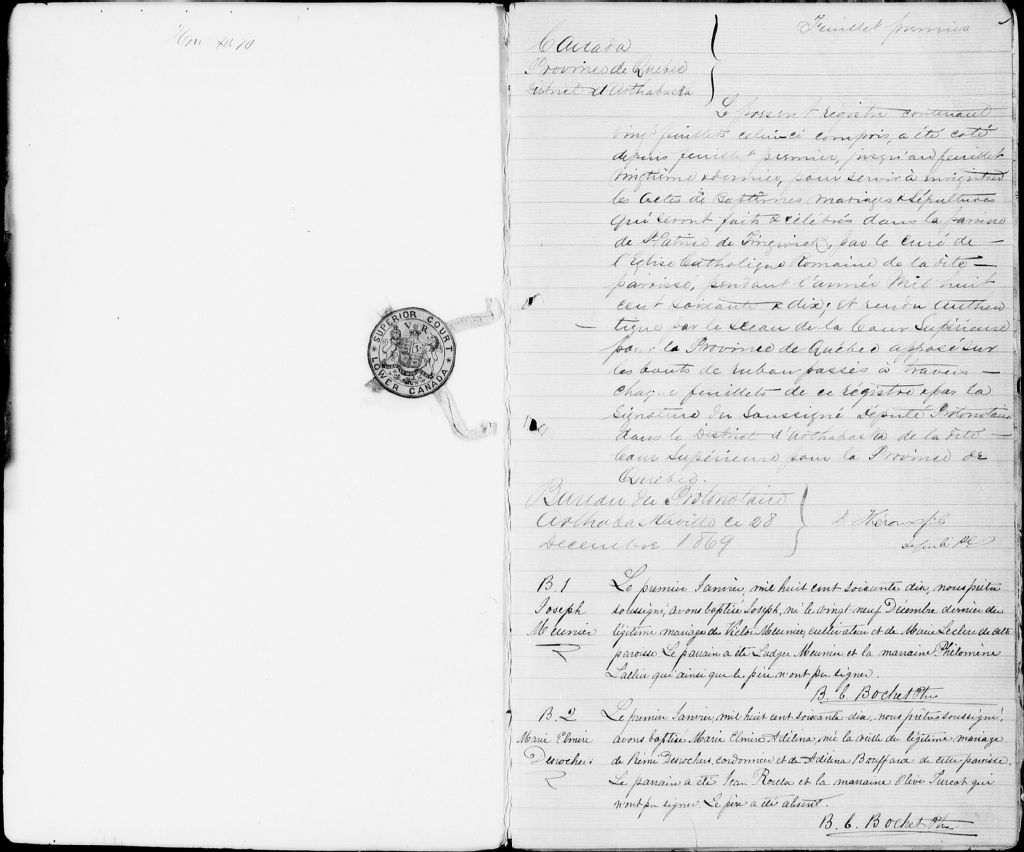 Feuillet premier
Canada
Province de Québec
District d'Arthabaska
Le présent régistre contenant
vingt feuillets celui-ci compris, a été coté
depuis feuillet premier, jusqu'au feuillet
vingtième & dernier, pour servir à enrégistrer
les actes de Baptêmes Mariages & Sépultures
qui seront faits & célébrés dans la paroisse
de St Patrice de Tingwick, par le curé de
l'Eglise Catholique Romaine de la dite
paroisse, pendant l'année Mil huit
cent soixante & dix; et rendu Authen
tique par le sceau de la Cour Supérieure
pour la Province de Québec apposé sur
les bouts de ruban passés à travers
chaque feuillets de ce régistre & par la
Signature du Soussigné Député Protonotaire
dans le District d'Arthabaska de la dite
Cour Supérieure pour la Province de
Québec.
Bureau du Protonotaire
Arthabaskaville ce 28
Décembre 1869
SUPERIOR COURT
V R
LOWER CANADA
B. 1
Joseph
Meunier
Le premier Janvier, mil huit cent soixante dix, nous prêtre
soussigné, avons baptisé Joseph, né le vingt neuf Décembre dernier du
légitime mariage de Victor Meunier, cultivateur et de Marie Leclerc de cette
paroisse. Le parrain a été Ludger Meunier et la marraine Philomène
qui ainsi que le père n'ont pu signer.
B. C. Bochet Ptre
B. 2
Marie Elmire
Desrochers
Le premier Janvier, mil huit cent soixante dix, nous prêtre soussigné,
avons baptisé Marie Elmire Adélina, née la veille du légitime mariage
de Rémi Desrochers, cordonnier et de Adélina Bouffard de cette paroisse.
Le parrain a été Jean et la marraine Olive Turcot qui
n'ont pu signer. Le père a été absent.
B. C. Bochet Ptre